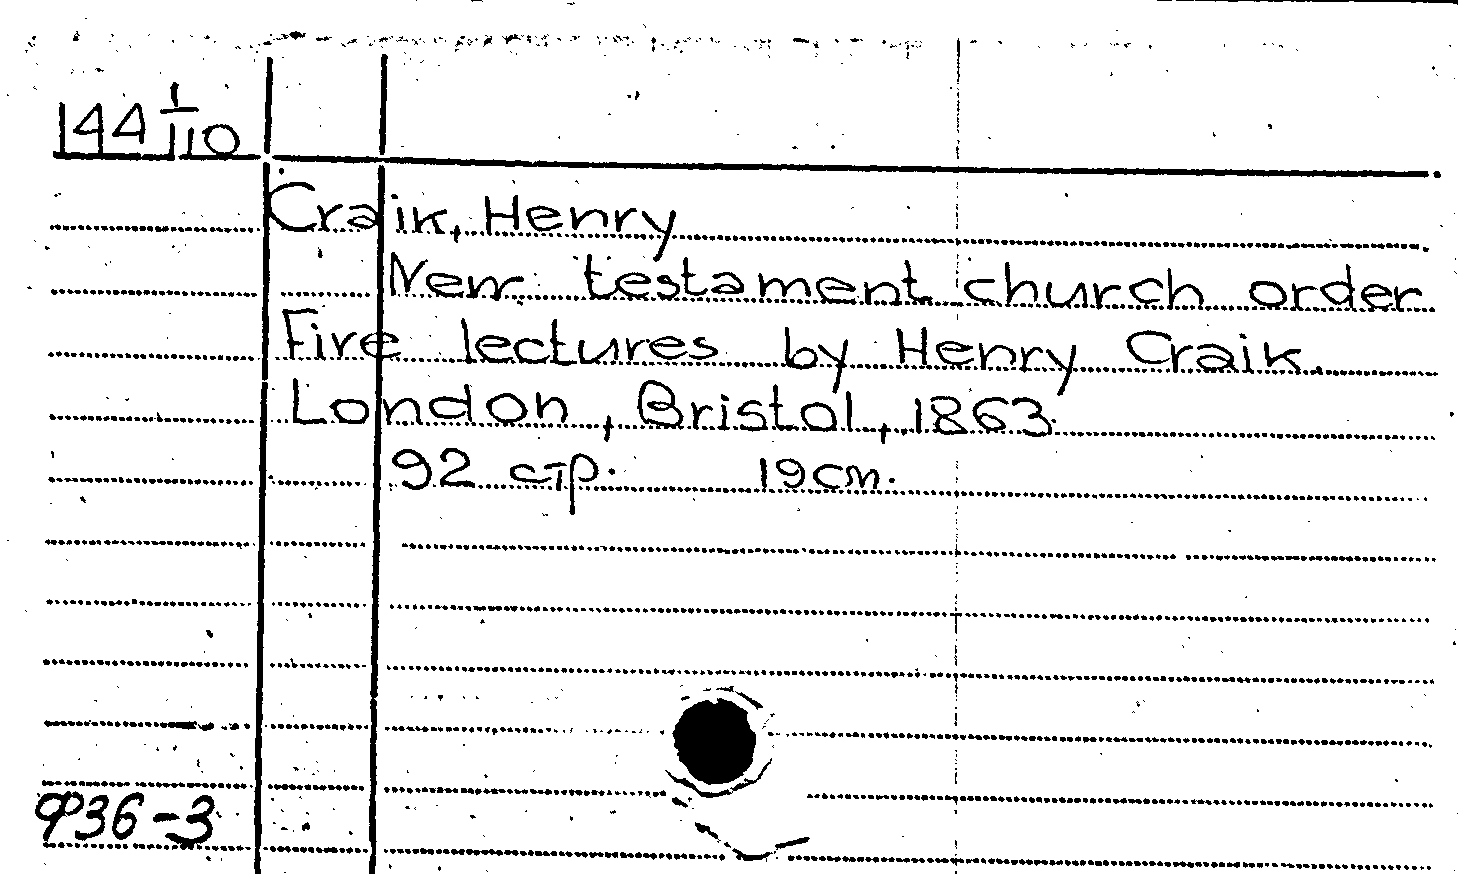 144 1/110
Craik, Henry
New testament church order
Five lectures by Henry Craik.
London, Bristol, 1863.
92 стр. 19cm.
936-3